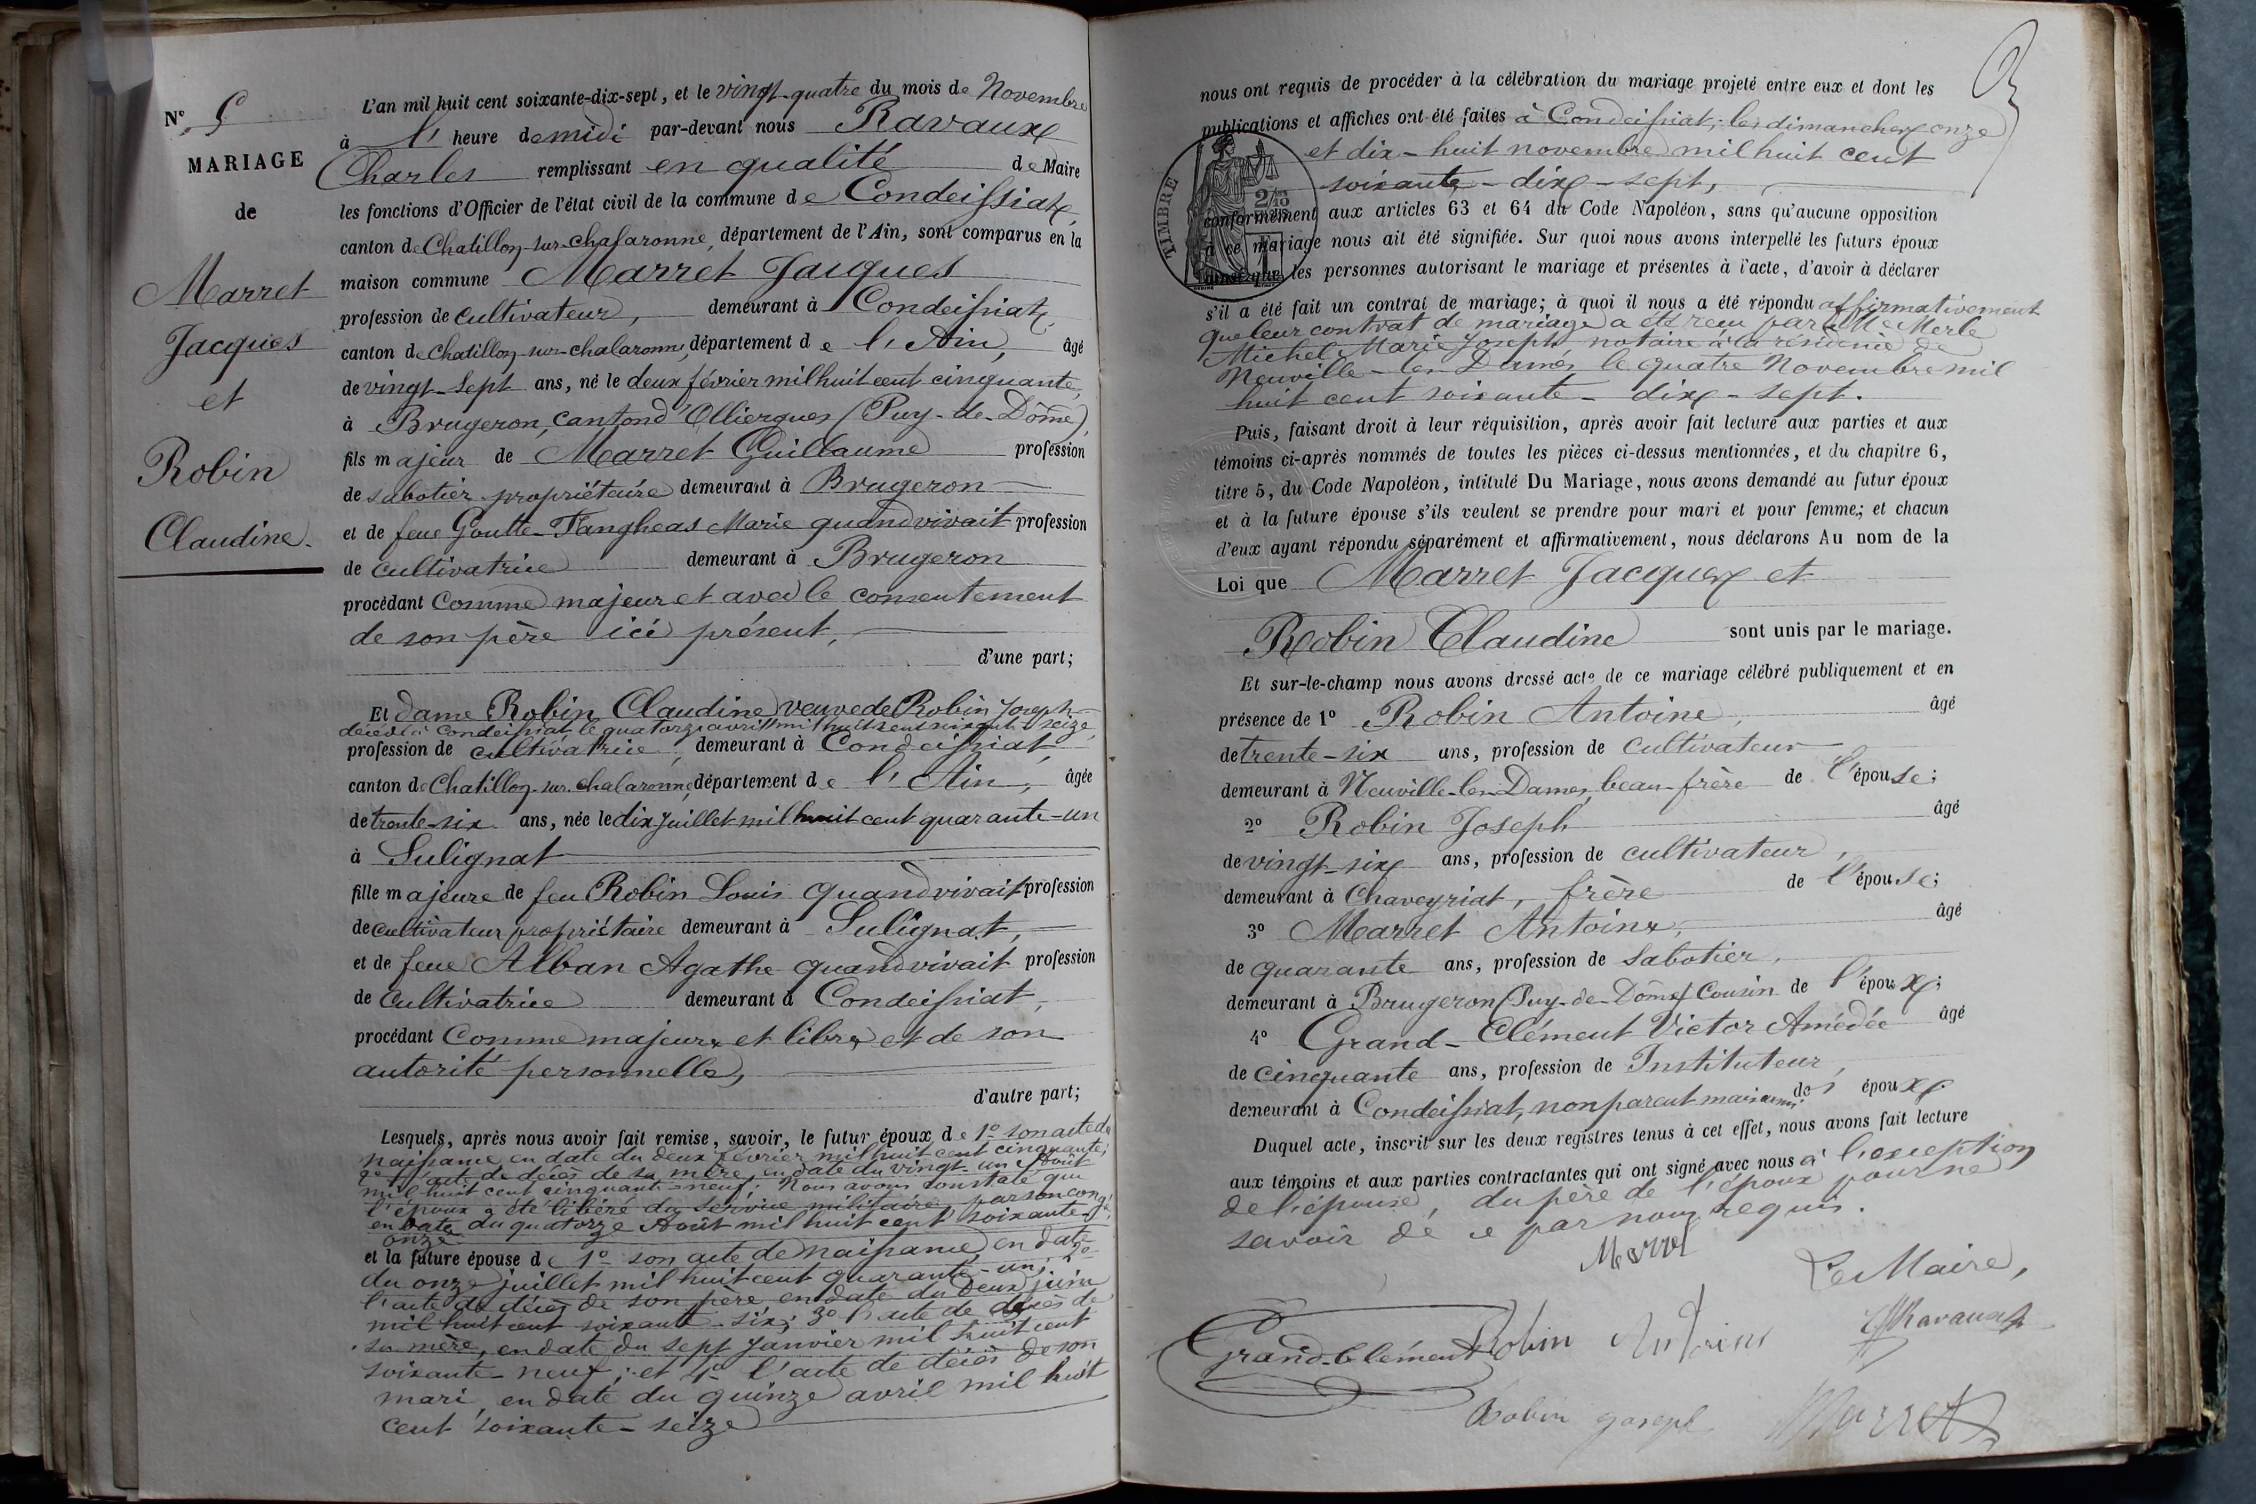 N° 5
MARIAGE
de
Marret
Jacques
et
Robin
Claudine.
L'an mil huit cent soixante-dix-sept, et le vingt-quatre du mois de Novembre
à l' heure de midi par-devant nous Ravaux
Charles remplissant en qualité de Maire
les fonctions d'Officier de l'état civil de la commune de Condeissiat,
canton de Chatillon-sur-chalaronne, département de l'Ain, sont comparus en la
maison commune Marret Jacques
profession de cultivateur, demeurant à Condeissiat,
canton de Chatillon-sur-chalaronne, département de l'Ain, âgé
de vingt-sept ans, né le deux février mil huit cent cinquante,
à Brugeron, canton d'Olliergues (Puy-de-Dôme),
fils majeur de Marret Guillaume profession
de sabotier propriétaire demeurant à Brugeron
et de feue Goutte-Fangheas Marie quand vivait profession
de cultivatrice demeurant à Brugeron
procédant Comme majeur et avec le consentement
de son père ici présent,
d'une part;
Et dame Robin Claudine veuve de Robin Joseph
décédé à Condeissiat le quatorze avril mil huit cent soixante seize,
profession de cultivatrice, demeurant à Condeissiat,
canton de Chatillon-sur-chalaronne, département de l'Ain, âgée
de trente-six ans, née le dix juillet mil huit cent quarante-un
à Sulignat
fille majeure de feu Robin Louis quand vivait profession
de cultivateur propriétaire demeurant à Sulignat,
et de feue Alban Agathe quand vivait profession
de Cultivatrice demeurant à Condeissiat,
procédant Comme majeure et libre et de son
autorité personnelle,
d'autre part;
Lesquels, après nous avoir fait remise, savoir, le futur époux de 1° son acte de
naissance en date du deux février mil huit cent cinquante;
2° l'acte de décès de sa mère en date du vingt-un Août
mil huit cent cinquante-neuf; Nous avons constaté que
l'époux a été libéré du service militaire par son congé
en date du quatorze Août mil huit cent soixante-
onze
et la future épouse de 1° son acte de naissance en date
du onze juillet mil huit cent quarante-un; 2°
l'acte de décès de son père en date du deux juin
mil huit cent soixante-six; 3° l'acte de décès de
sa mère, en date du sept janvier mil huit cent
soixante-neuf; et 4° l'acte de décès de son
mari en date du quinze avril mil huit
cent soixante-seize
nous ont requis de procéder à la célébration du mariage projeté entre eux et dont les
publications et affiches ont été faites à Condeissiat, les dimanches onze
et dix-huit novembre mil huit cent
soixante-dix-sept,
TIMBRE
conformément aux articles 63 et 64 du Code Napoléon, sans qu'aucune opposition
à ce mariage nous ait été signifiée. Sur quoi nous avons interpellé les futurs époux
ainsi que les personnes autorisant le mariage et présentes à l'acte, d'avoir à déclarer
s'il a été fait un contrat de mariage; à quoi il nous a été répondu affirmativement
que leur contrat de mariage a été reçu par Me Merle
Michel Marie Joseph notaire à la résidence de
Neuville-les-Dames, le quatre Novembre mil
huit cent soixante-dix-sept.
Puis, faisant droit à leur réquisition, après avoir fait lecture aux parties et aux
témoins ci-après nommés de toutes les pièces ci-dessus mentionnées, et du chapitre 6,
titre 5, du Code Napoléon, intitulé Du Mariage, nous avons demandé au futur époux
et à la future épouse s'ils veulent se prendre pour mari et pour femme; et chacun
d'eux ayant répondu séparément et affirmativement, nous déclarons Au nom de la
Loi que Marret Jacques et
Robin Claudine sont unis par le mariage.
Et sur-le-champ nous avons dressé acte de ce mariage célébré publiquement et en
présence de 1° Robin Antoine, âgé
de trente-six ans, profession de cultivateur
demeurant à Neuville-les-Dames, beau-frère de l'épouse;
2° Robin Joseph âgé
de vingt-six ans, profession de cultivateur,
demeurant à Chaveyriat, frère de l'épouse;
3° Marret Antoine, âgé
de quarante ans, profession de sabotier,
demeurant à Brugeron (Puy-de-Dôme) Cousin de l'époux;
4° Grand-Clément Victor Amédée âgé
de cinquante ans, profession de Instituteur,
demeurant à Condeissiat, non parent mais ami des époux
Duquel acte, inscrit sur les deux registres tenus à cet effet, nous avons fait lecture
aux témoins et aux parties contractantes qui ont signé avec nous à l'exception
de l'épouse, du père de l'époux pour ne
savoir de ce par nous requis.
Marret
Le Maire,
Ravaux
Grand-Clément Robin Antoine
Robin joseph Marret